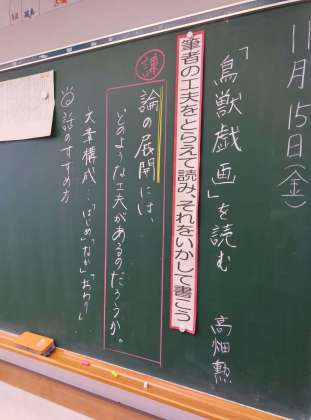 11月15日(金)
「鳥獣戯画」を読む 高畑勲
筆者の工夫をとらえて読み、それをいかして書こう
課
論の展開には、
どのような工夫があるのだろうか。
文章構成…「はじめ」「なか」「おわり」
話のすすめ方